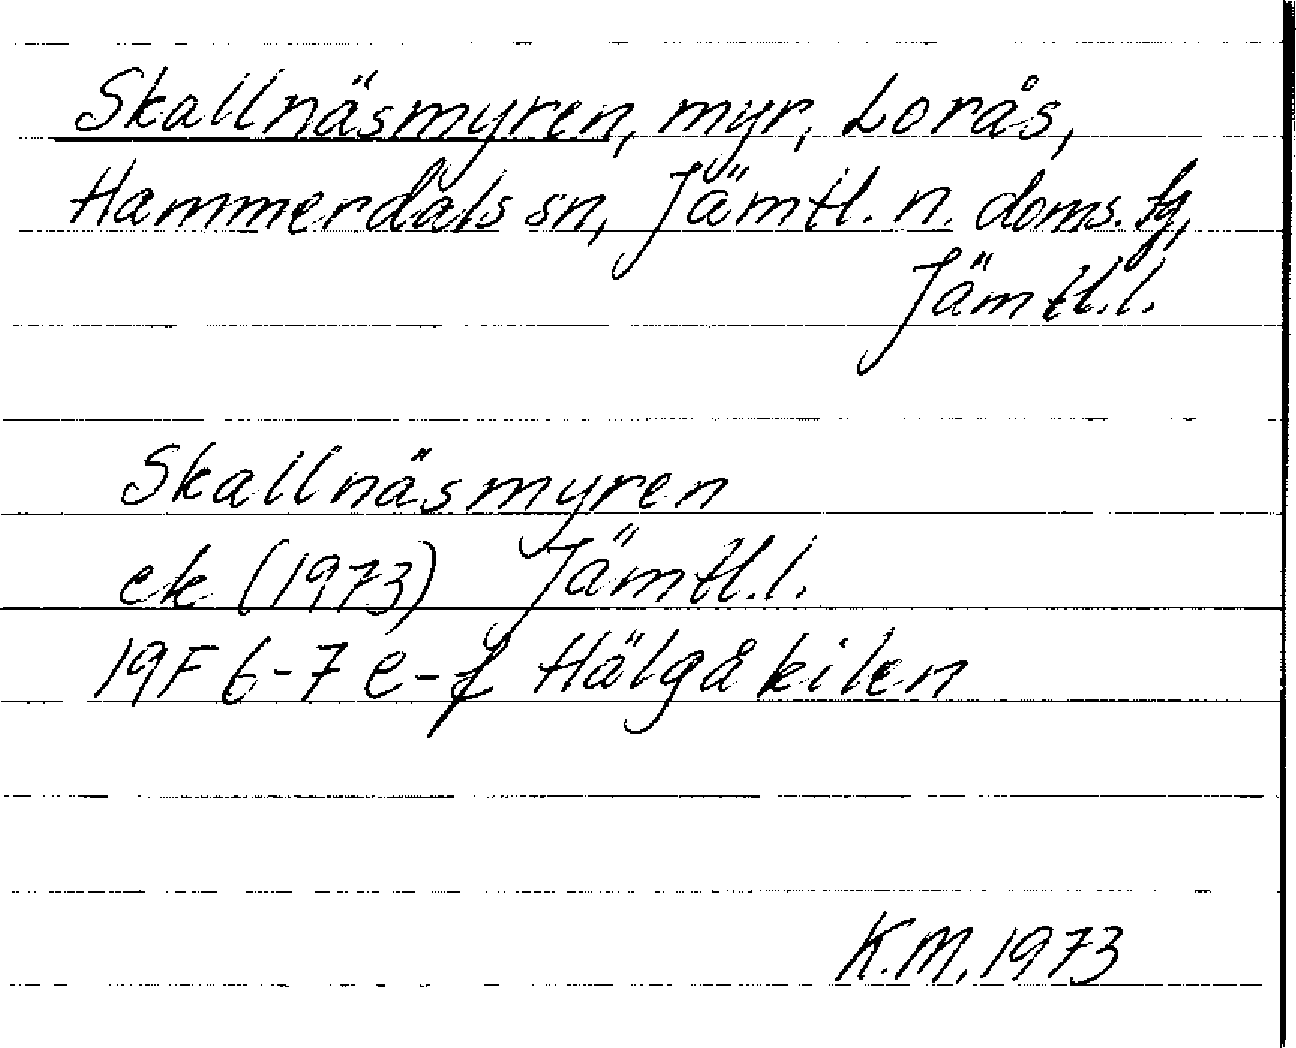 Skallnäsmyren, myr, Lorås,
Hammerdals sn, Jämtl. n. doms. tg,
Jämtl.l.
Skallnäsmyren
ek (1973) Jämtl.l.
19F 6-7 e-f Hälgåkilen
K.M. 1973